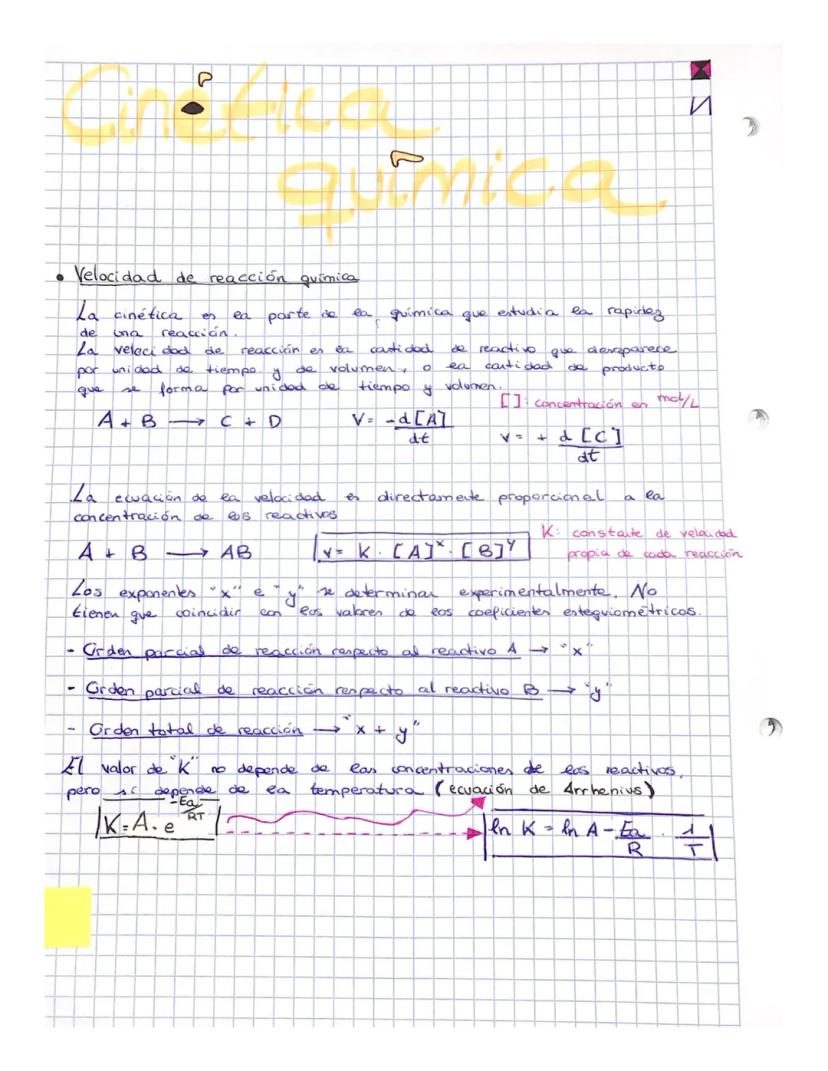 Cinética
química
• Velocidad de reacción química
La cinética es la parte de la química que estudia la rapidez
de una reacción.
La velocidad de reacción es la cantidad de reactivo que desaparece
por unidad de tiempo y de volumen, o la cantidad de producto
que se forma por unidad de tiempo y volumen.
[ ]: concentración en mol/L
A + B → C + D V = -d[A]/dt v = + d[C]/dt
La ecuación de la velocidad es directamente proporcional a la
concentración de los reactivos
A + B → AB v = K · [A]^x · [B]^y K: constante de velocidad
propia de cada reacción
Los exponentes "x" e "y" se determinan experimentalmente. No
tienen que coincidir con los valores de los coeficientes estequiométricos.
- Orden parcial de reacción respecto al reactivo A → "x"
- Orden parcial de reacción respecto al reactivo B → "y"
- Orden total de reacción → "x + y"
El valor de "K" no depende de las concentraciones de los reactivos,
pero sí depende de la temperatura (ecuación de Arrhenius)
K = A · e^(-Ea/RT) ln K = ln A - Ea/R · 1/T